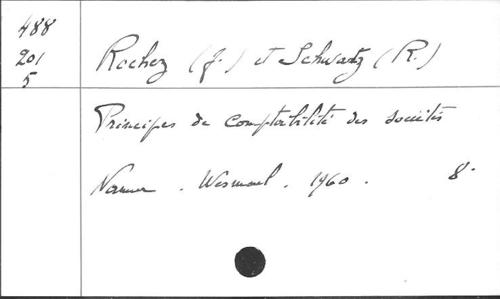 488
201
5
Rochez (J.) et Schwartz (R.)
Principes de comptabilité des sociétés
Namur . Wesmael . 1960 . 8°